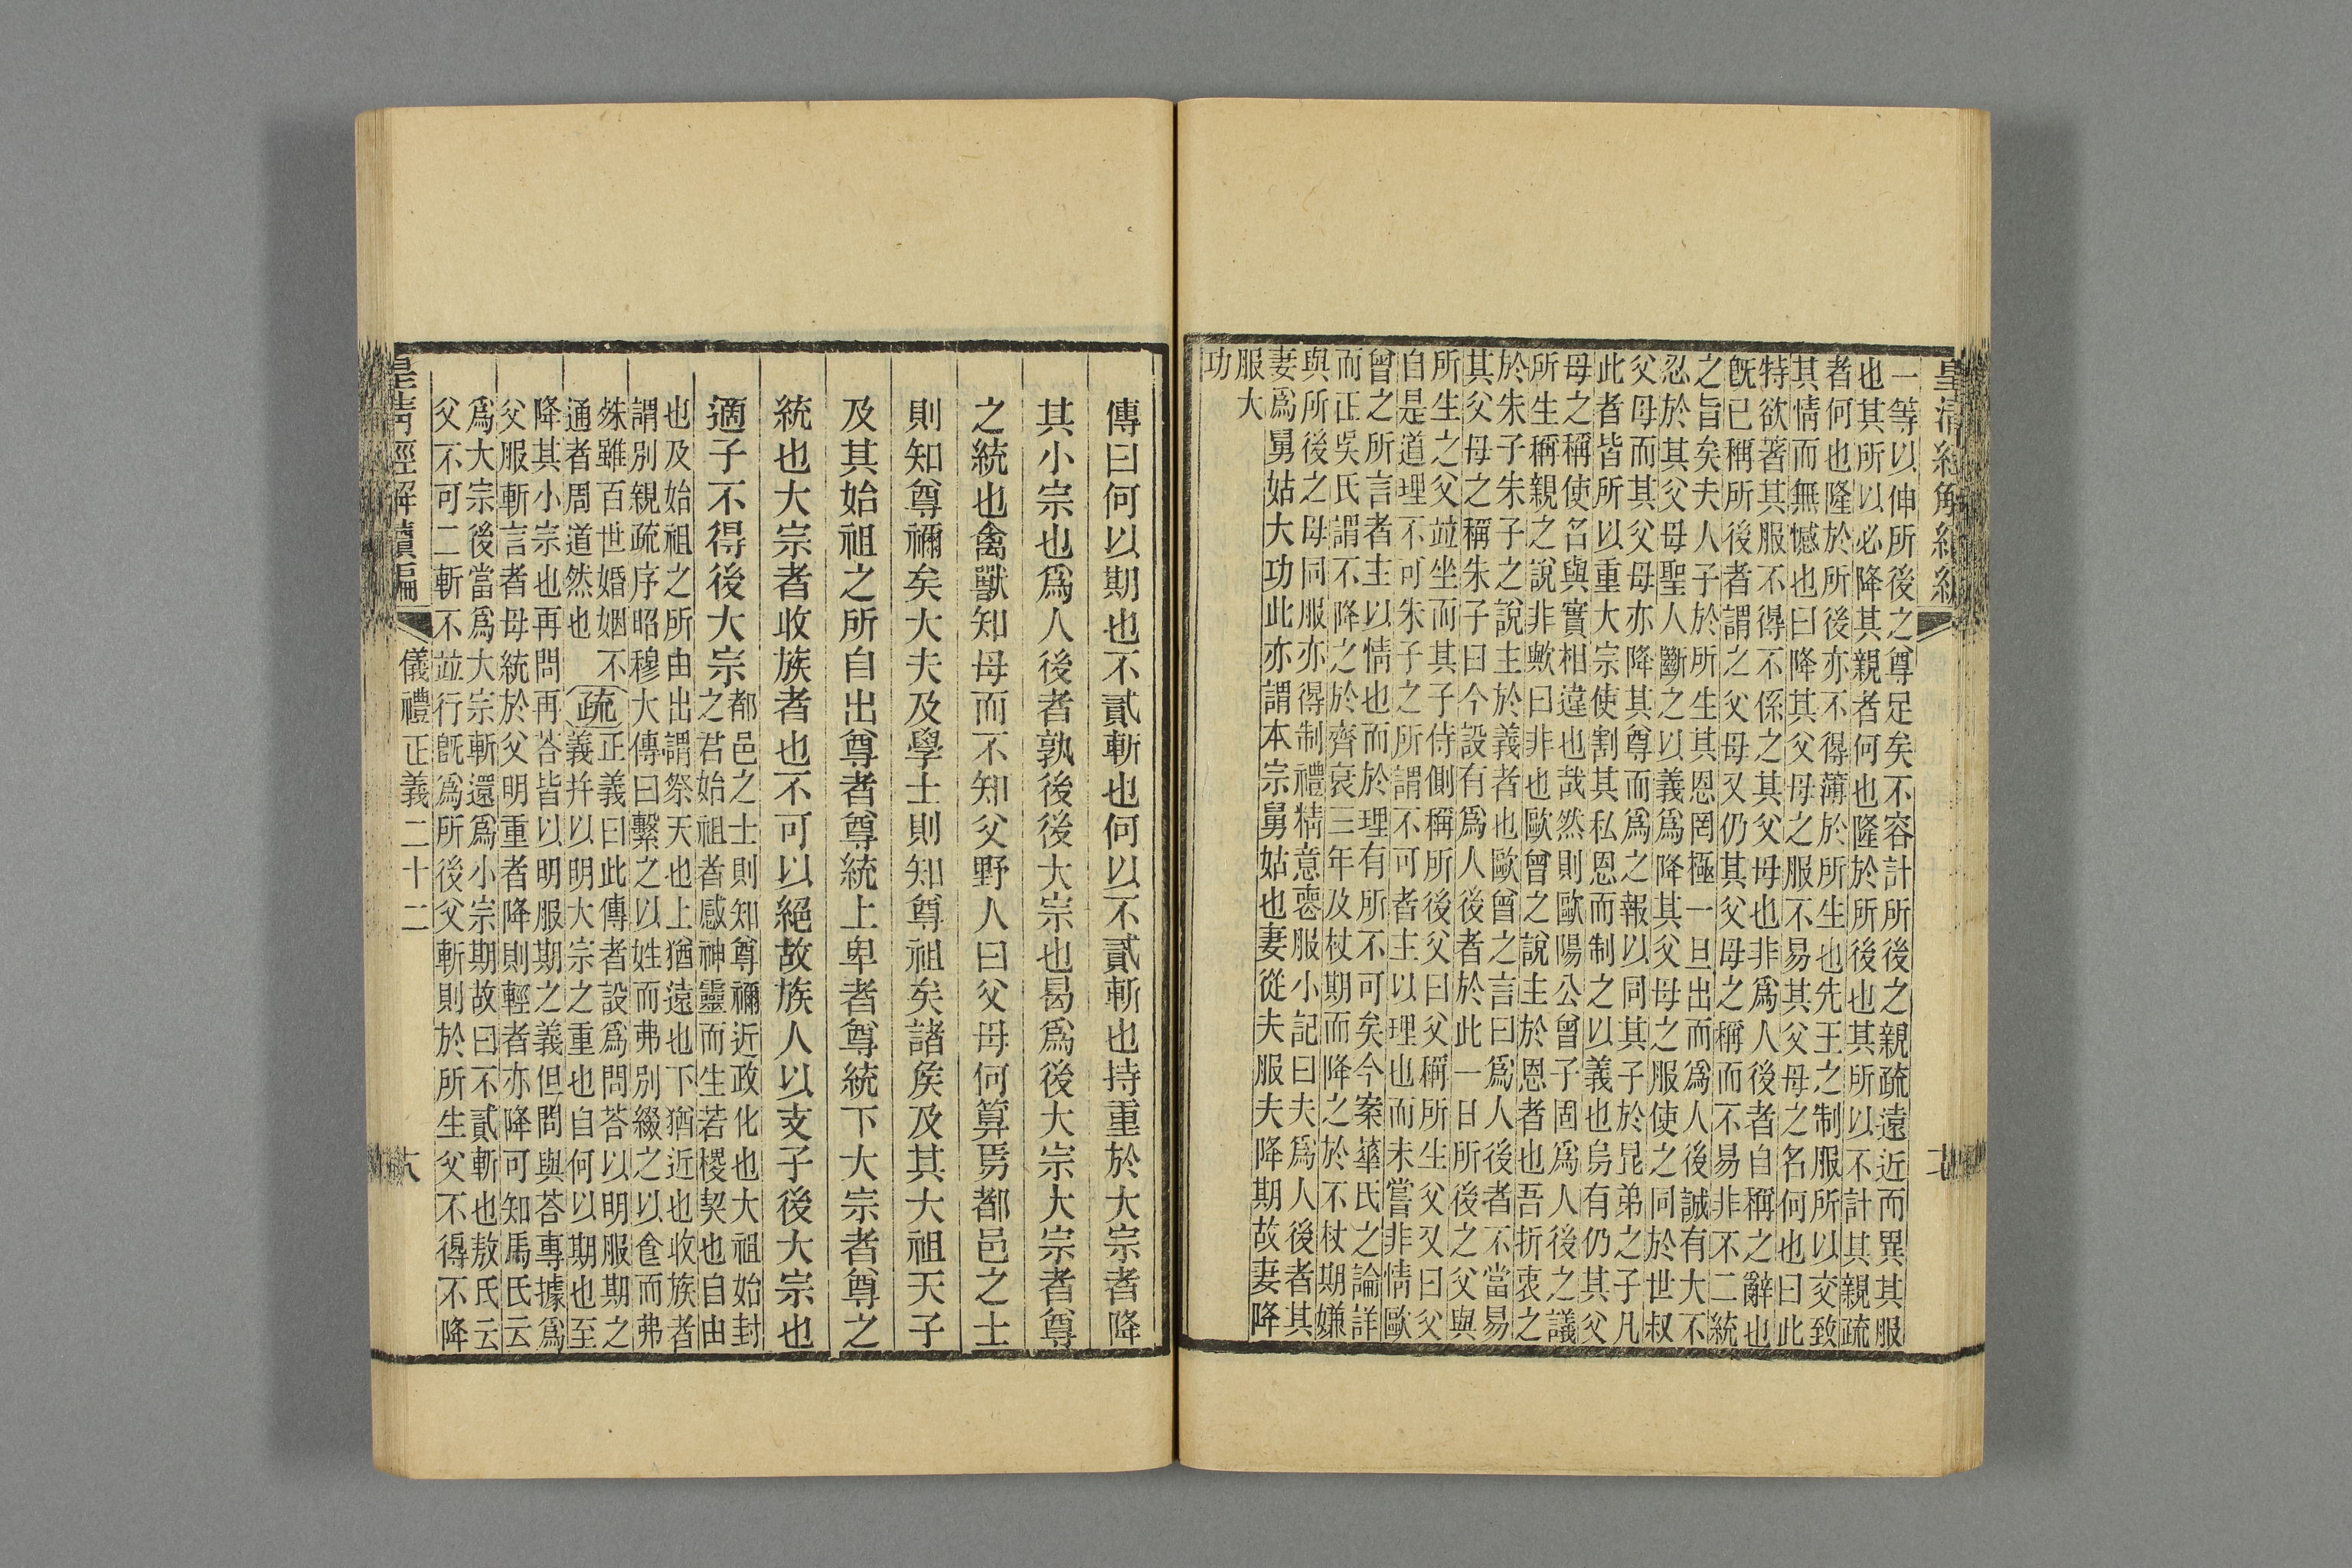 一等以伸所後之尊足矣不容計所後之親疏遠近而異其服
也其所以必降其親者何也隆於所後也其所以不計其親疏
者何也隆於所後亦不得薄於所生也先王之制服所以交致
其情而無憾也曰降其父母之服不易其父母之名何也曰此
特欲著其服不得不係之其父母也非爲人後者自稱之辭也
旣已稱所後者謂之父母又仍其父母之稱而不易非不二統
之旨矣夫人子於所生其恩罔極一旦出而爲人後誠有大不
忍於其父母聖人斷之以義爲降其父母之服使之同於世叔
父母而其父母亦降其尊而爲之報以同其子於昆弟之子凡
此者皆所以重大宗使割其私恩而制之以義也烏有仍其父
母之稱使名與實相違也哉然則歐陽公曾子固爲人後之議
所生稱親之說非歟曰非也歐曾之說主於恩者也吾折衷之
於朱子朱子之說主於義者也歐曾之言曰爲人後者不當易
其父母之稱朱子曰今設有爲人後者於此一日所後之父與
所生之父竝坐而其子侍側稱所後父曰父稱所生父又曰父
自是道理不可朱子之所謂不可者主以理也而未嘗非情歐
曾之所言者主以情也而於理有所不可矣今案華氏之論詳
而正吳氏謂不降之於齊衰三年及杖期而降之於不杖期嫌
與所後之母同服亦得制禮精意喪服小記曰夫爲人後者其
妻爲舅姑大功此亦謂本宗舅姑也妻從夫服夫降期故妻降
服大
功
傳曰何以期也不貳斬也何以不貳斬也持重於大宗者降
其小宗也爲人後者孰後後大宗也曷爲後大宗大宗者尊
之統也禽獸知母而不知父野人曰父母何算焉都邑之士
則知尊禰矣大夫及學士則知尊祖矣諸侯及其大祖天子
及其始祖之所自出尊者尊統上卑者尊統下大宗者尊之
統也大宗者收族者也不可以絕故族人以支子後大宗也
適子不得後大宗
都邑之士則知尊禰近政化也大祖始封
之君始祖者感神靈而生若稷契也自由
也及始祖之所由出謂祭天也上猶遠也下猶近也收族者
謂別親疏序昭穆大傳曰繫之以姓而弗別綴之以食而弗
殊雖百世婚姻不
通者周道然也
疏
正義曰此傳者設爲問荅以明服期之
義幷以明大宗之重也自何以期也至
降其小宗也再問再荅皆以明服期之義但問與荅專據爲
父服斬言者母統於父明重者降則輕者亦降可知馬氏云
爲大宗後當爲大宗斬還爲小宗期故曰不貳斬也敖氏云
父不可二斬不竝行旣爲所後父斬則於所生父不得不降
皇淸經解續編
儀禮正義二十二